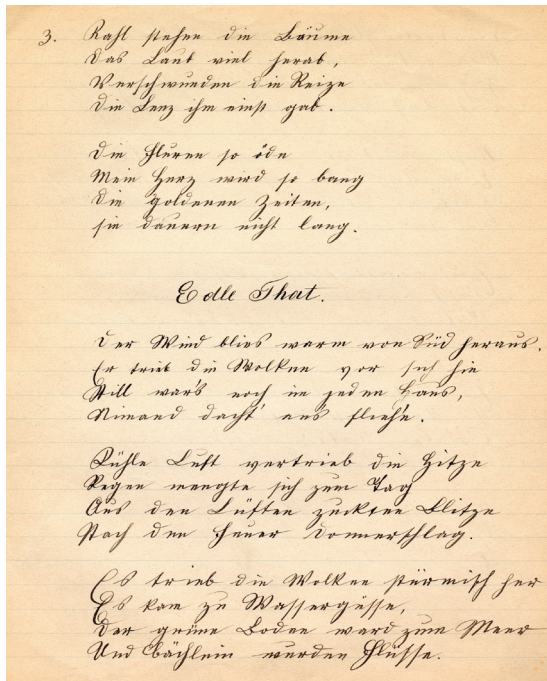 3. Kahl stehen die Bäume
Das Laub viel herab,
Verschwunden die Reize
Die Lenz ihm einst gab.
Die Fluren so öde
Mein Herz wird so bang
Die goldenen Zeiten,
sie dauern nicht lang.
Edle That.
Der Wind blies warm von Süd heraus.
Er trieb die Wolken vor sich hin
Still war's noch in jeden Haus,
Nimand dacht' ans flieh'n.
Kühle Luft vertrieb die Hitze
Regen mengte sich zum Tag
Aus den Lüften zuckten Blitze
Nach den Feuer Donnerschlag.
Es trieb die Wolken stürmisch her
Es kam zu Wassergüsse,
Der grüne Boden ward zum Meer
Und Bächlein wurden Flüsse.